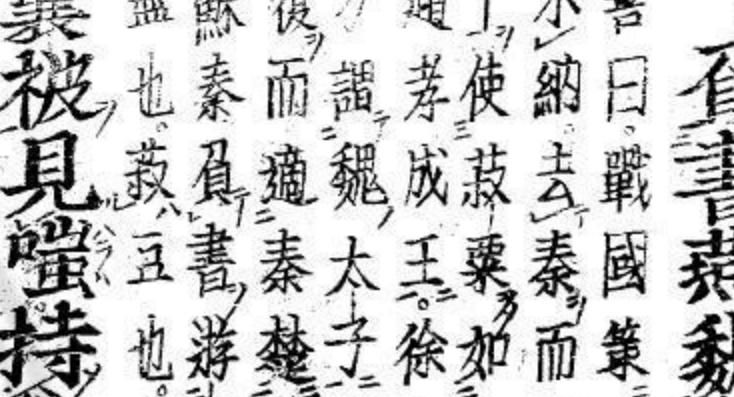 負書燕魏
善曰。戰國策
納。去秦而
使菽粟如
通孝成王。徐
謂魏太子
復而適秦楚
蘇秦負書游
也。菽豆也。
被見嗤持